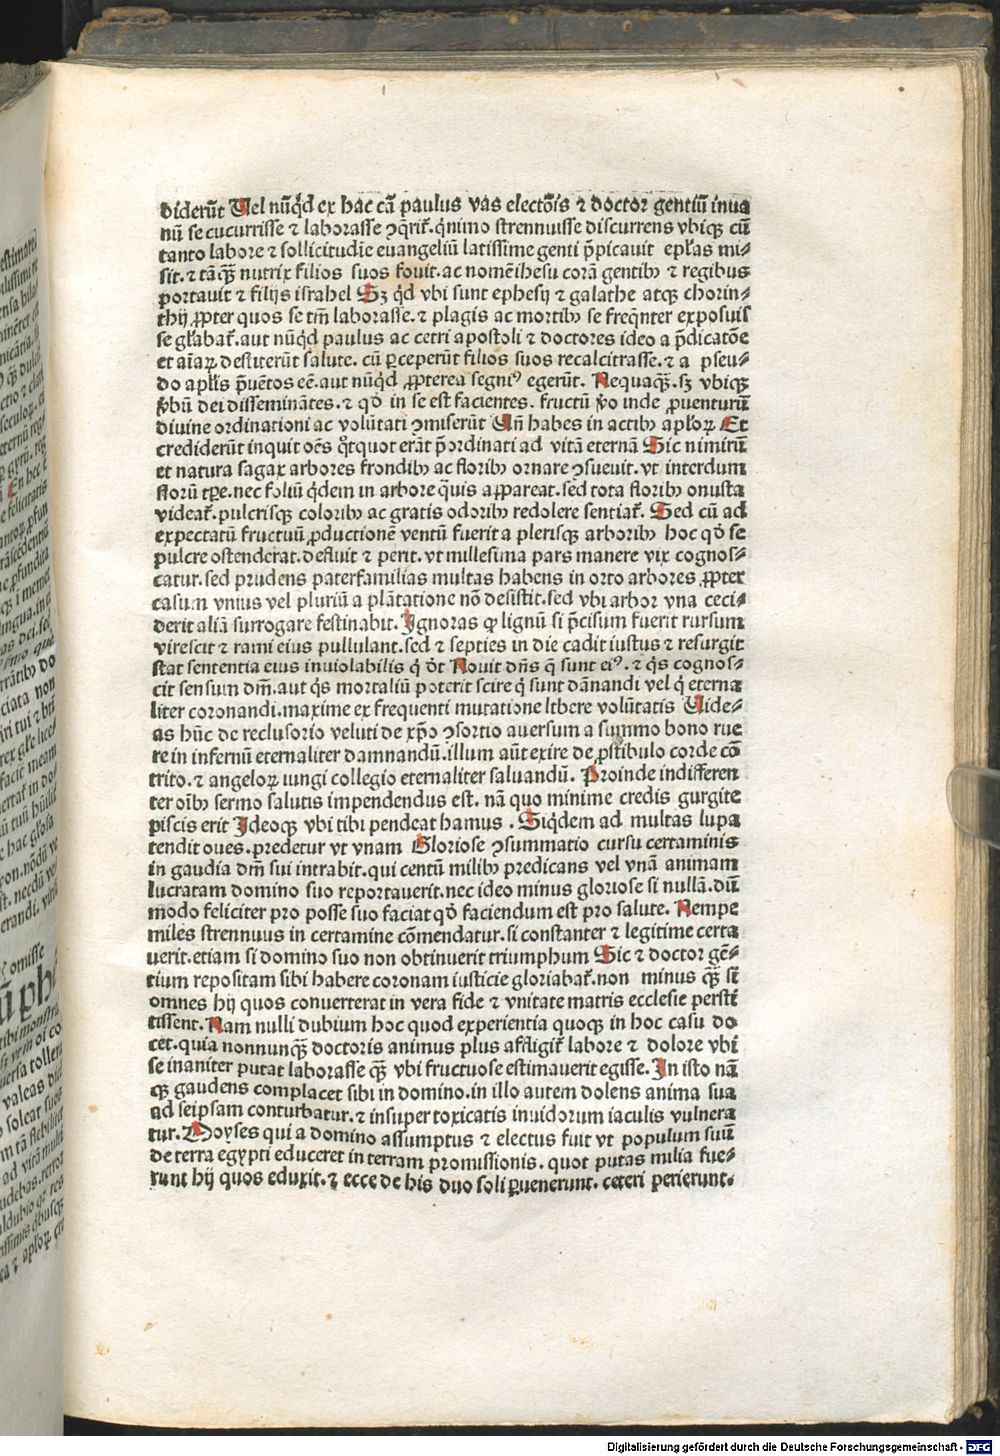 diderūt Uel nūq̇d ex hac cā paulus vas electōis ⁊ doctor gentiū inua
nū se cucurrisse ⁊ laborasse ꝯq̄rit̄. q̇nimo strennuisse discurrens vbiqꝫ cū
tanto labore ⁊ sollicitudīe euangeliū latissime genti p̄picauit ep̄las mi⸗
sit. ⁊ tāqꝫ̄ nutrix filios suos fouit. ac nomē ihesu corā gentibꝫ ⁊ regibus
portauit ⁊ filijs israhel Sꝫ q̇d vbi sunt ephesij ⁊ galathe atqꝫ chorin⸗
thij ꝓpter quos se tm̄ laborasse. ⁊ plagis ac mortibꝫ se freq̄nter exposuis
se gl̄abat̄. aut nūq̇d paulus ac cetri apostoli ⁊ doctores ideo a p̄dicatōe
et aīaꝝ destiterūt salute. cū ꝑceperūt filios suos recalcitrasse. ⁊ a pseu⸗
do apl̄is p̄uētos eē. aut nūq̇d ꝓpterea segniꝰ egerūt. Nequaqꝫ̄. sꝫ vbiqꝫ
v̄bū dei disseminātes. ⁊ qd̄ in se est facientes. fructū v̄o inde ꝓuenturū
diuine ordinationi ac volūtati ꝯmiserūt Uñ habes in actibꝫ apl̄oꝝ Et
crediderūt inquit oēs qͦtquot erāt p̄ordinati ad vitā eternā Sic nimirū
et natura sagax arbores frondibꝫ ac floribꝫ ornare ꝯsueuit. vt interdum
florū tꝑe. nec foliū q̇dem in arbore q̄uis appareat. sed tota floribꝫ onusta
videat̄. pulcrisqꝫ coloribꝫ ac gratis odoribꝫ redolere sentiat̄. Sed cū ad
expectatū fructuū ꝓductionē ventū fuerit a plerisqꝫ arboribꝫ hoc qd̄ se
pulcre ostenderat. defluit ⁊ perit. vt millesima pars manere vix cognos⸗
catur. sed prudens paterfamilias multas habens in orto arbores ꝓpter
casum vnius vel pluriū a plātatione nō desistit. sed vbi arbor vna ceci⸗
derit aliā surrogare festinabit. Ignoras ꝙ lignū si p̄cisum fuerit rursum
virescit ⁊ rami eius pullulant. sed ⁊ septies in die cadit iustus ⁊ resurgit
stat sententia eius inuiolabilis q̇ d̄t Nouit dn̄s q̄ sunt eiꝰ. ⁊ q̇s cognos⸗
cit sensum dm̄. aut q̇s mortaliū poterit scire q̇ sunt dānandi vel q̇ eterna
liter coronandi. maxime ex frequenti mutatione libere volūtatis Uide⸗
as hūc de reclusorio veluti de xp̄o ꝯsortio auersum a summo bono rue
re in infernū eternaliter damnandū. illum aūt exire de ꝓstibulo corde cō
trito. ⁊ angeloꝝ iungi collegio eternaliter saluandū. Proinde indifferen
ter oībꝫ sermo salutis impendendus est. nā quo minime credis gurgite
piscis erit Ideoqꝫ vbi tibi pendeat hamus. Siq̇dem ad multas lupa
tendit oues. predetur vt vnam Gloriose ꝯsummatio cursu certaminis
in gaudia dm̄ sui intrabit. qui centū milibꝫ predicans vel vnā animam
lucratam domino suo reportauerit. nec ideo minus gloriose si nullā. dū
modo feliciter pro posse suo faciat qd̄ faciendum est pro salute. Nempe
miles strennuus in certamine cōmendatur. si constanter ⁊ legitime certa
uerit. etiam si domino suo non obtinuerit triumphum Sic ⁊ doctor gē⸗
tium repositam sibi habere coronam iusticie gloriabat̄. non minus qꝫ̄ si
omnes hij quos conuerterat in vera fide ⁊ vnitate matris ecclesie perstī
tissent. Nam nulli dubium hoc quod experientia quoqꝫ in hoc casu do
cet. quia nonnunqꝫ̄ doctoris animus plus affligit̄ labore ⁊ dolore vbi
se inaniter putat laborasse qꝫ̄ vbi fructuose estimauerit egisse. In isto nā
qꝫ gaudens complacet sibi in domino. in illo autem dolens anima sua
ad seipsam conturbatur. ⁊ insuper toxicatis inuidorum iaculis vulnera
tur. Moyses qui a domino assumptus ⁊ electus fuit vt populum suū
de terra egypti educeret in terram promissionis. quot putas milia fue⸗
runt hij quos eduxit. ⁊ ecce de his duo soli ꝑuenerunt. ceteri perierunt.
Digitalisierung gefördert durch die Deutsche Forschungsgemeinschaft - DFG